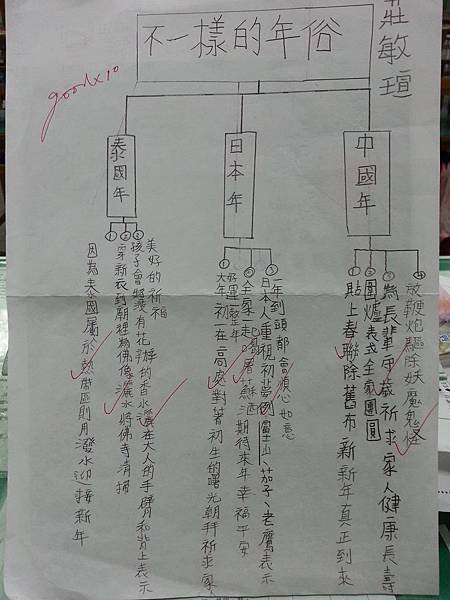 莊敏瑄
不一樣的年俗
goodx10
中國年
①貼上春聯除舊布新新年真正到來
②圍爐表示全家團圓
③為長輩守歲祈求家人健康長壽
④放鞭炮驅除妖魔鬼怪
日本年
①大年初一在高處對著初生的曙光朝拜祈求家
好運整年
②全家一起喝屠蘇酒期待來年幸福平安
③日本人重視初夢夢到富士山、茄子、老鷹表示
一年到頭都會順心如意
泰國年
①因為泰國屬於熱帶區則用潑水迎接新年
②穿新衣到廟裡為佛像灑水將佛寺清掃
③孩子會將裝有花瓣的香水潑灑在大人的手臂和背上表示
美好的祈福